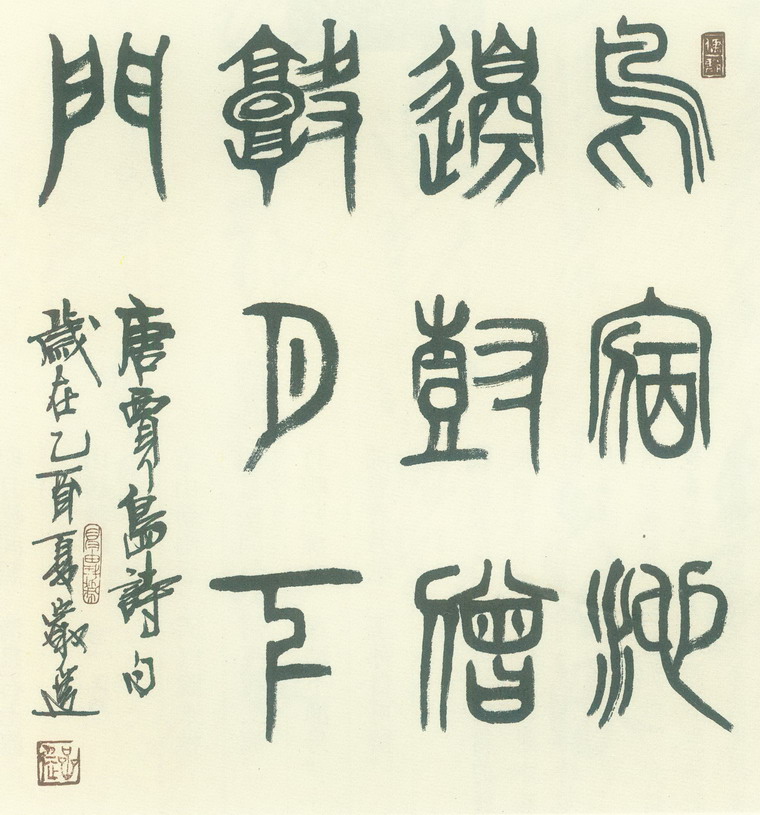 鳥宿池
邊樹僧
敲月下
門
唐賈島詩句
歲在乙酉夏